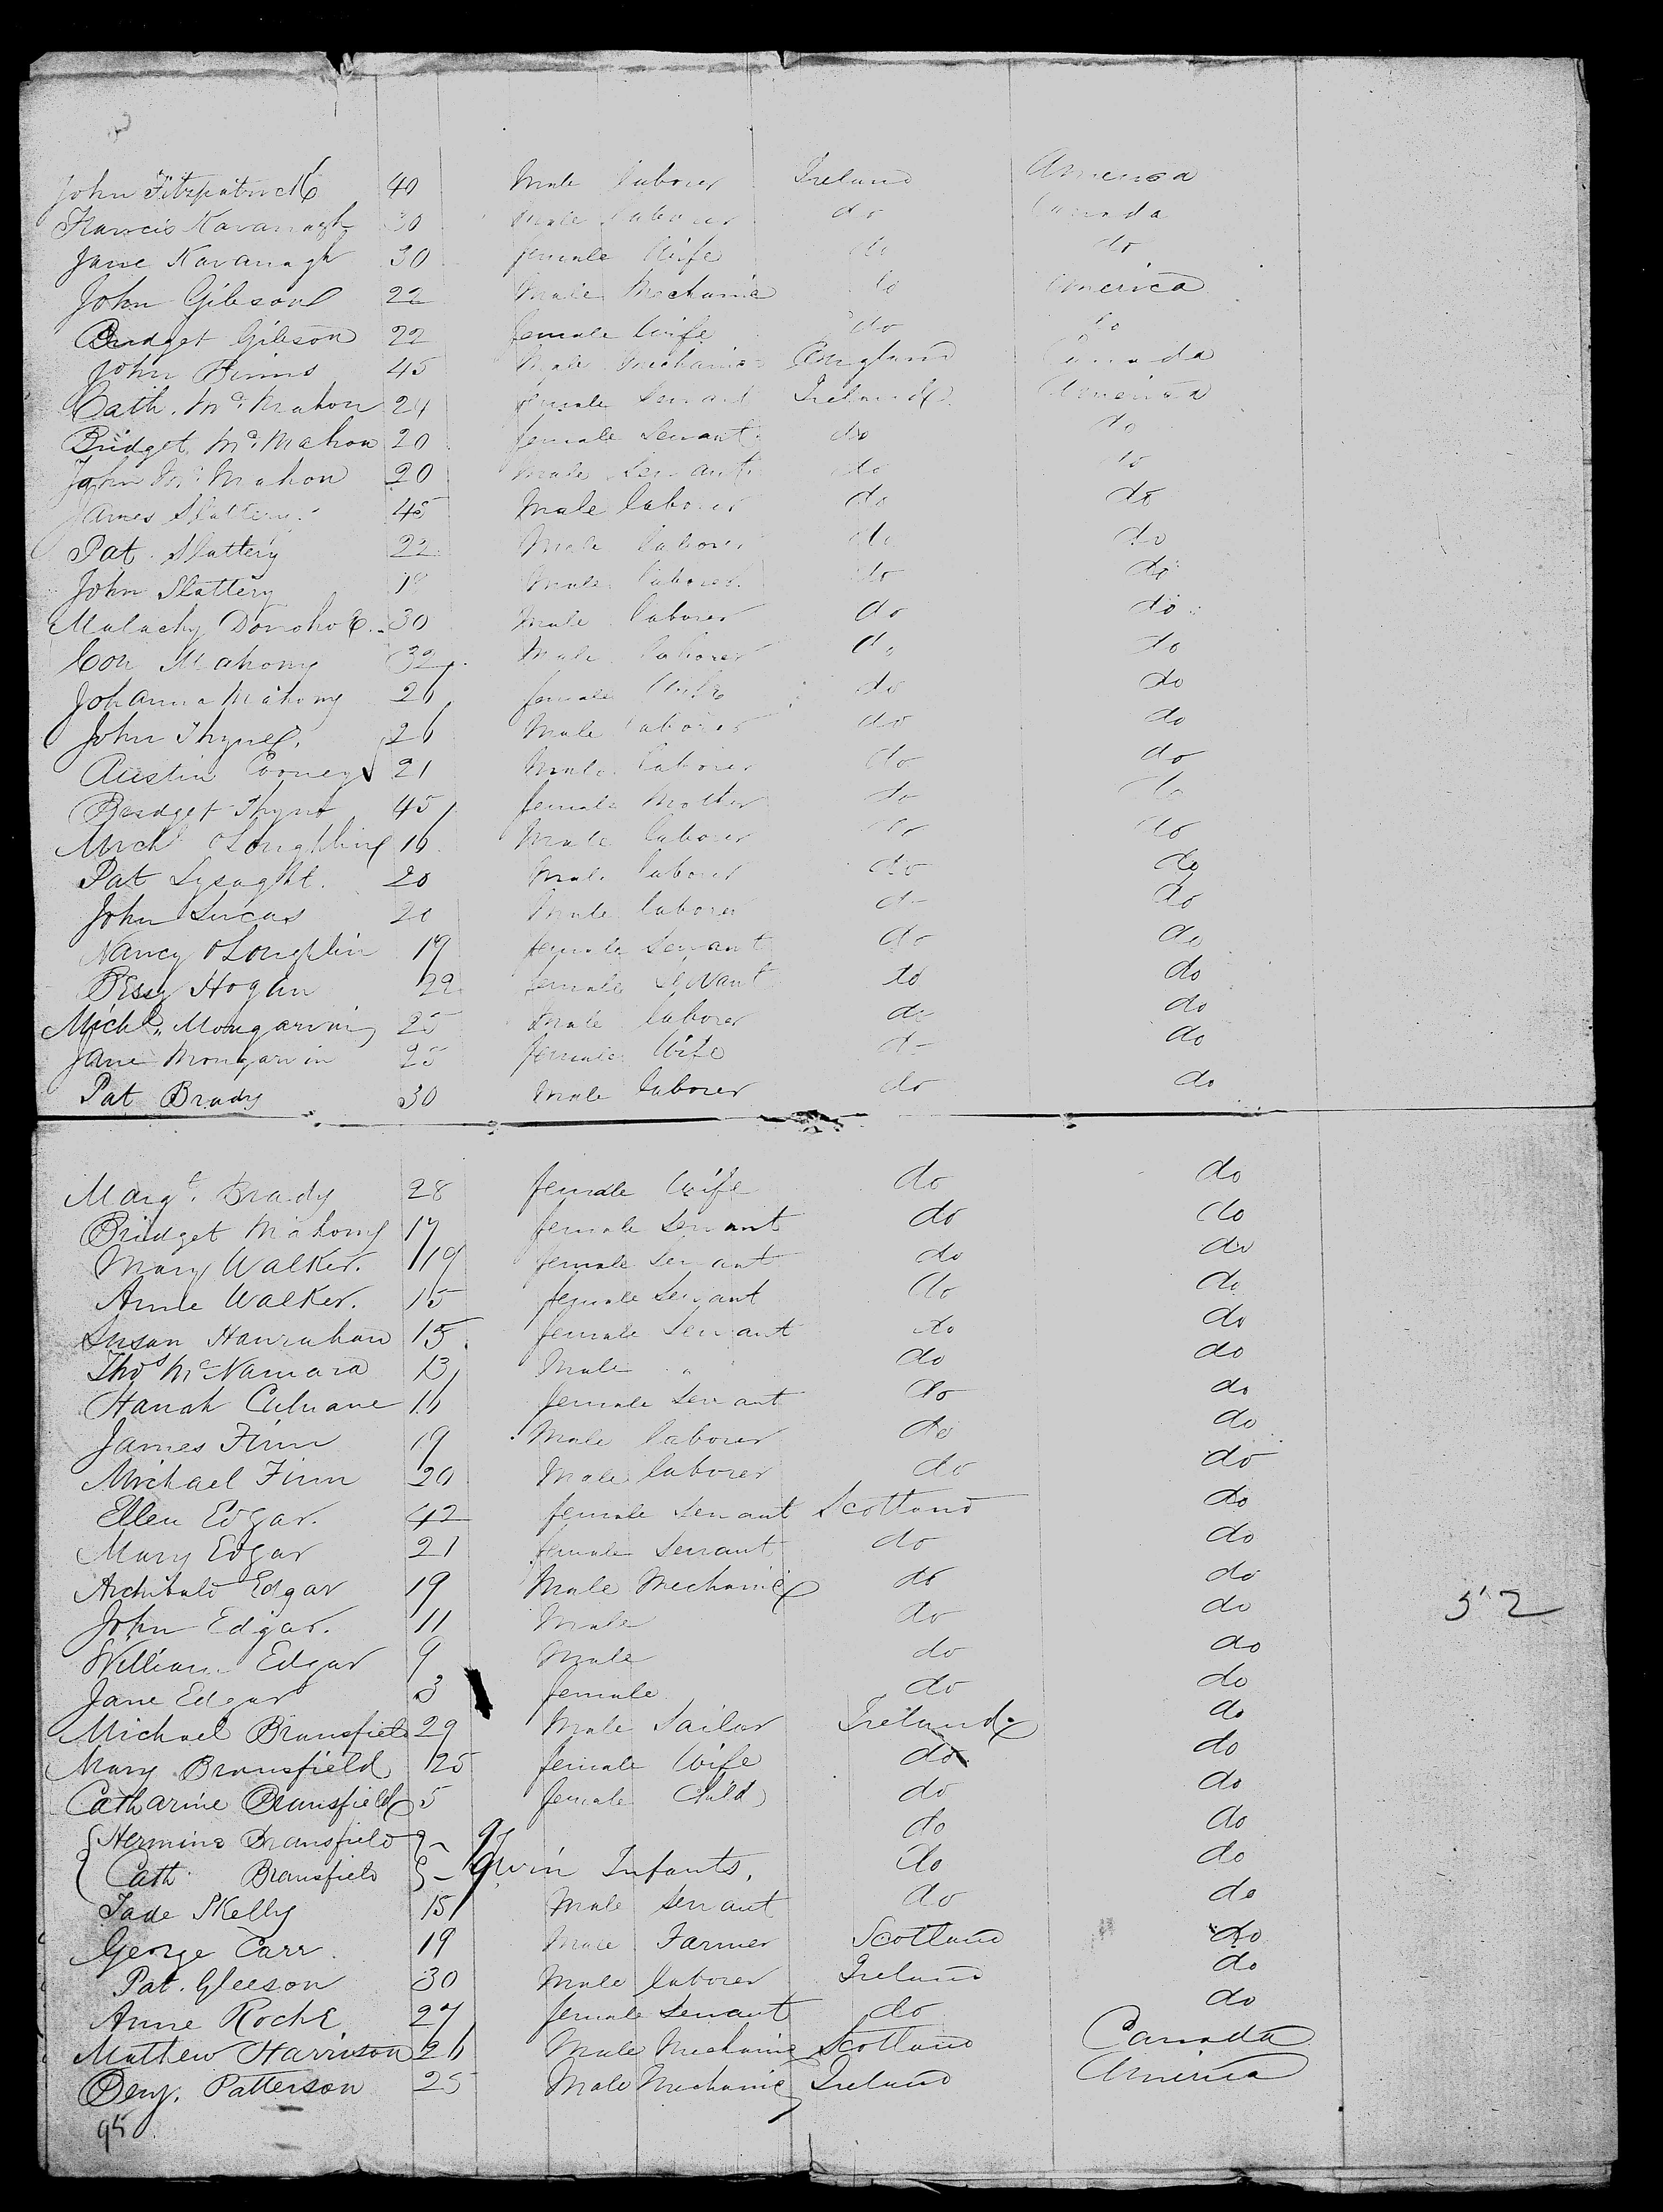 John Fitzpatrick 40 Male laborer Ireland America
Francis Kavanagh 30 Male laborer do Canada
Jane Kavanagh 30 female Wife do do
John Gibson 22 Male Mechanic do America
Bridget Gibson 22 female Wife do do
John Binns 45 Male Mechanic England Canada
Cath. Mc Mahon 24 female Servant Ireland America
Bridget Mc Mahon 20 female Servant do do
John Mc Mahon 20 Male Servant do do
James Slattery 45 Male laborer do do
Pat Slattery 22 Male laborer do do
John Slattery Male laborer do do
Malachy Donohoe 30 Male laborer do do
Con Mahony 32 Male laborer do do
Johanna Mahony 26 female Wife do do
John Thyne 26 Male laborer do do
Austin Cooney 21 Male laborer do do
Bridget Thyne 45 female Mother do do
Michl OLoughlin 16 Male laborer do do
Pat Lysaght 20 Male laborer do do
John Lucas 20 Male laborer do do
Nancy OLoughlin 19 female Servant do do
Bessy Hogan 22 female Servant do do
Michl. Mongarvin 25 Male laborer do do
Jane Mongarvin 25 female Wife do do
Pat Brady 30 Male laborer do do
Margt. Brady 28 female Wife do do
Bridget Mahony 17 female Servant do do
Mary Walker. 19 female Servant do do
Anne Walker. 15 female Servant do do
Susan Hanrahan 15 female Servant do do
Thos Mc Namara 13 Male " do do
Hanah Culnane 16 female Servant do do
James Finn 19 Male laborer do do
Michael Finn 20 Male laborer do do
Ellen Edgar. 42 female Servant Scotland do
Mary Edgar 21 female Servant do do
Archibald Edgar 19 Male Mechanic do do
John Edgar. 11 Male do do 52
William Edgar 9 Male do do
Jane Edgar 3 female do do
Michael Bransfield 29 Male Sailor Ireland do
Mary Bransfield 25 female Wife do do
Catharine Bransfield 5 female Child do do
Hermina Bransfield do do
Cath Bransfield Twin Infants. do do
Tade Skelly 15 Male Servant do do
George Carr. 19 Male Farmer Scotland do
Pat. Gleeson 30 Male laborer Ireland do
Anne Roche 27 female Servant do do
Mathew Harrison 26 Male Mechanic Scotland Canada
Benj. Patterson 25 Male Mechanic Ireland America
95